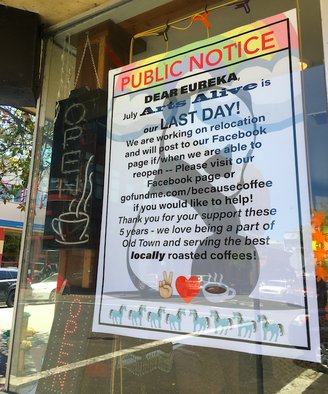 PUBLIC NOTICE
DEAR EUREKA,
July Arts Alive is
our LAST DAY!
We are working on relocation
and will post to our Facebook
page if/when we are able to
reopen -- Please visit our
Facebook page or
gofundme.com/becausecoffee
if you would like to help!
Thank you for your support these
5 years - we love being a part of
Old Town and serving the best
locally roasted coffees!
OPEN
OPEN